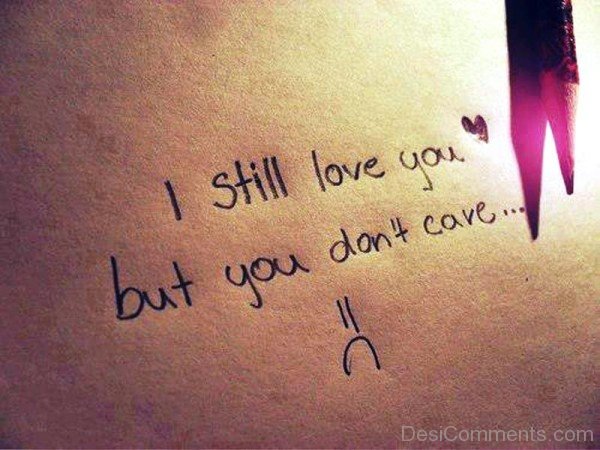 I still love you♥
but you don't care...
=(
DesiComments.com